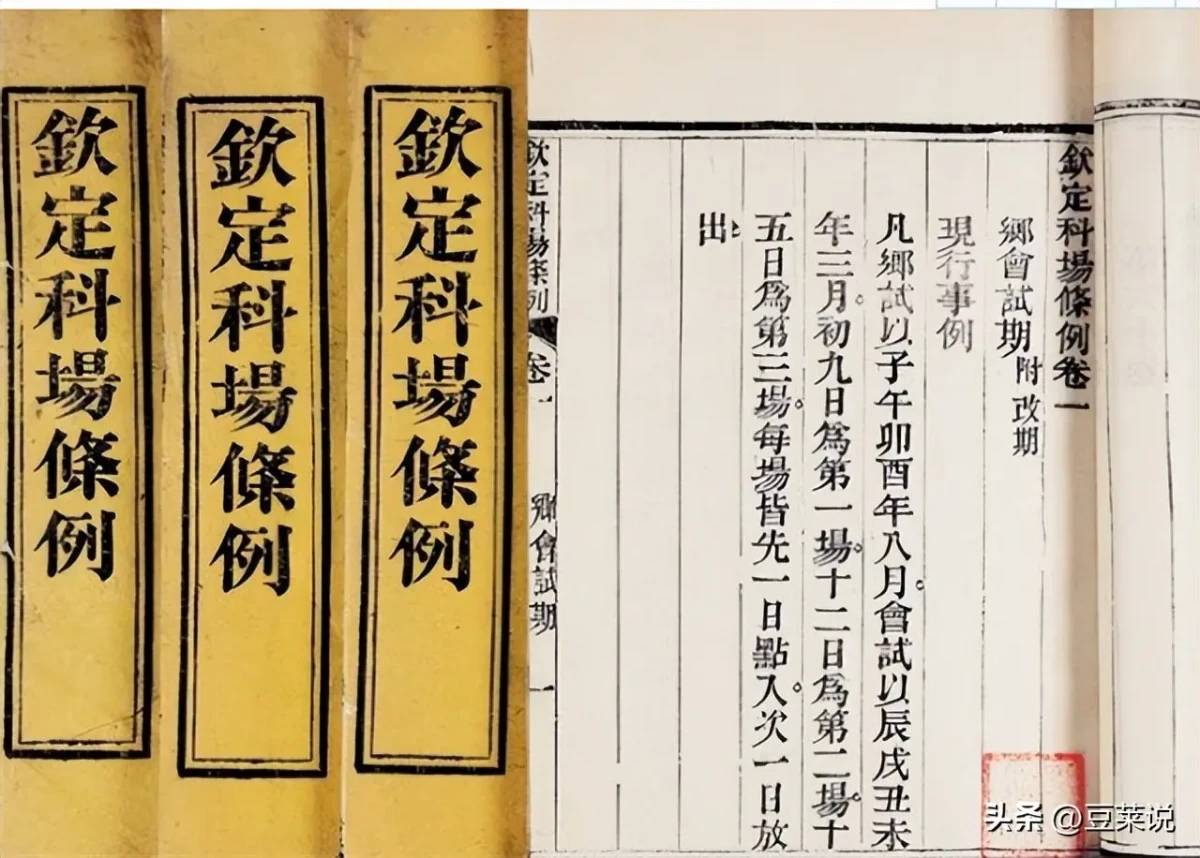 欽定科場條例
欽定科場條例
欽定科場條例
欽定科場條例卷一
鄉會試期附改期
現行事例
凡鄉試以子午卯酉年八月。會試以辰戌丑未
年三月。初九日爲第一場。十二日爲第二場。十
五日爲第三場。每場皆先一日點入。次一日放
出。
欽定科場條例 卷一 鄉會試期 一
头条 @豆莱说